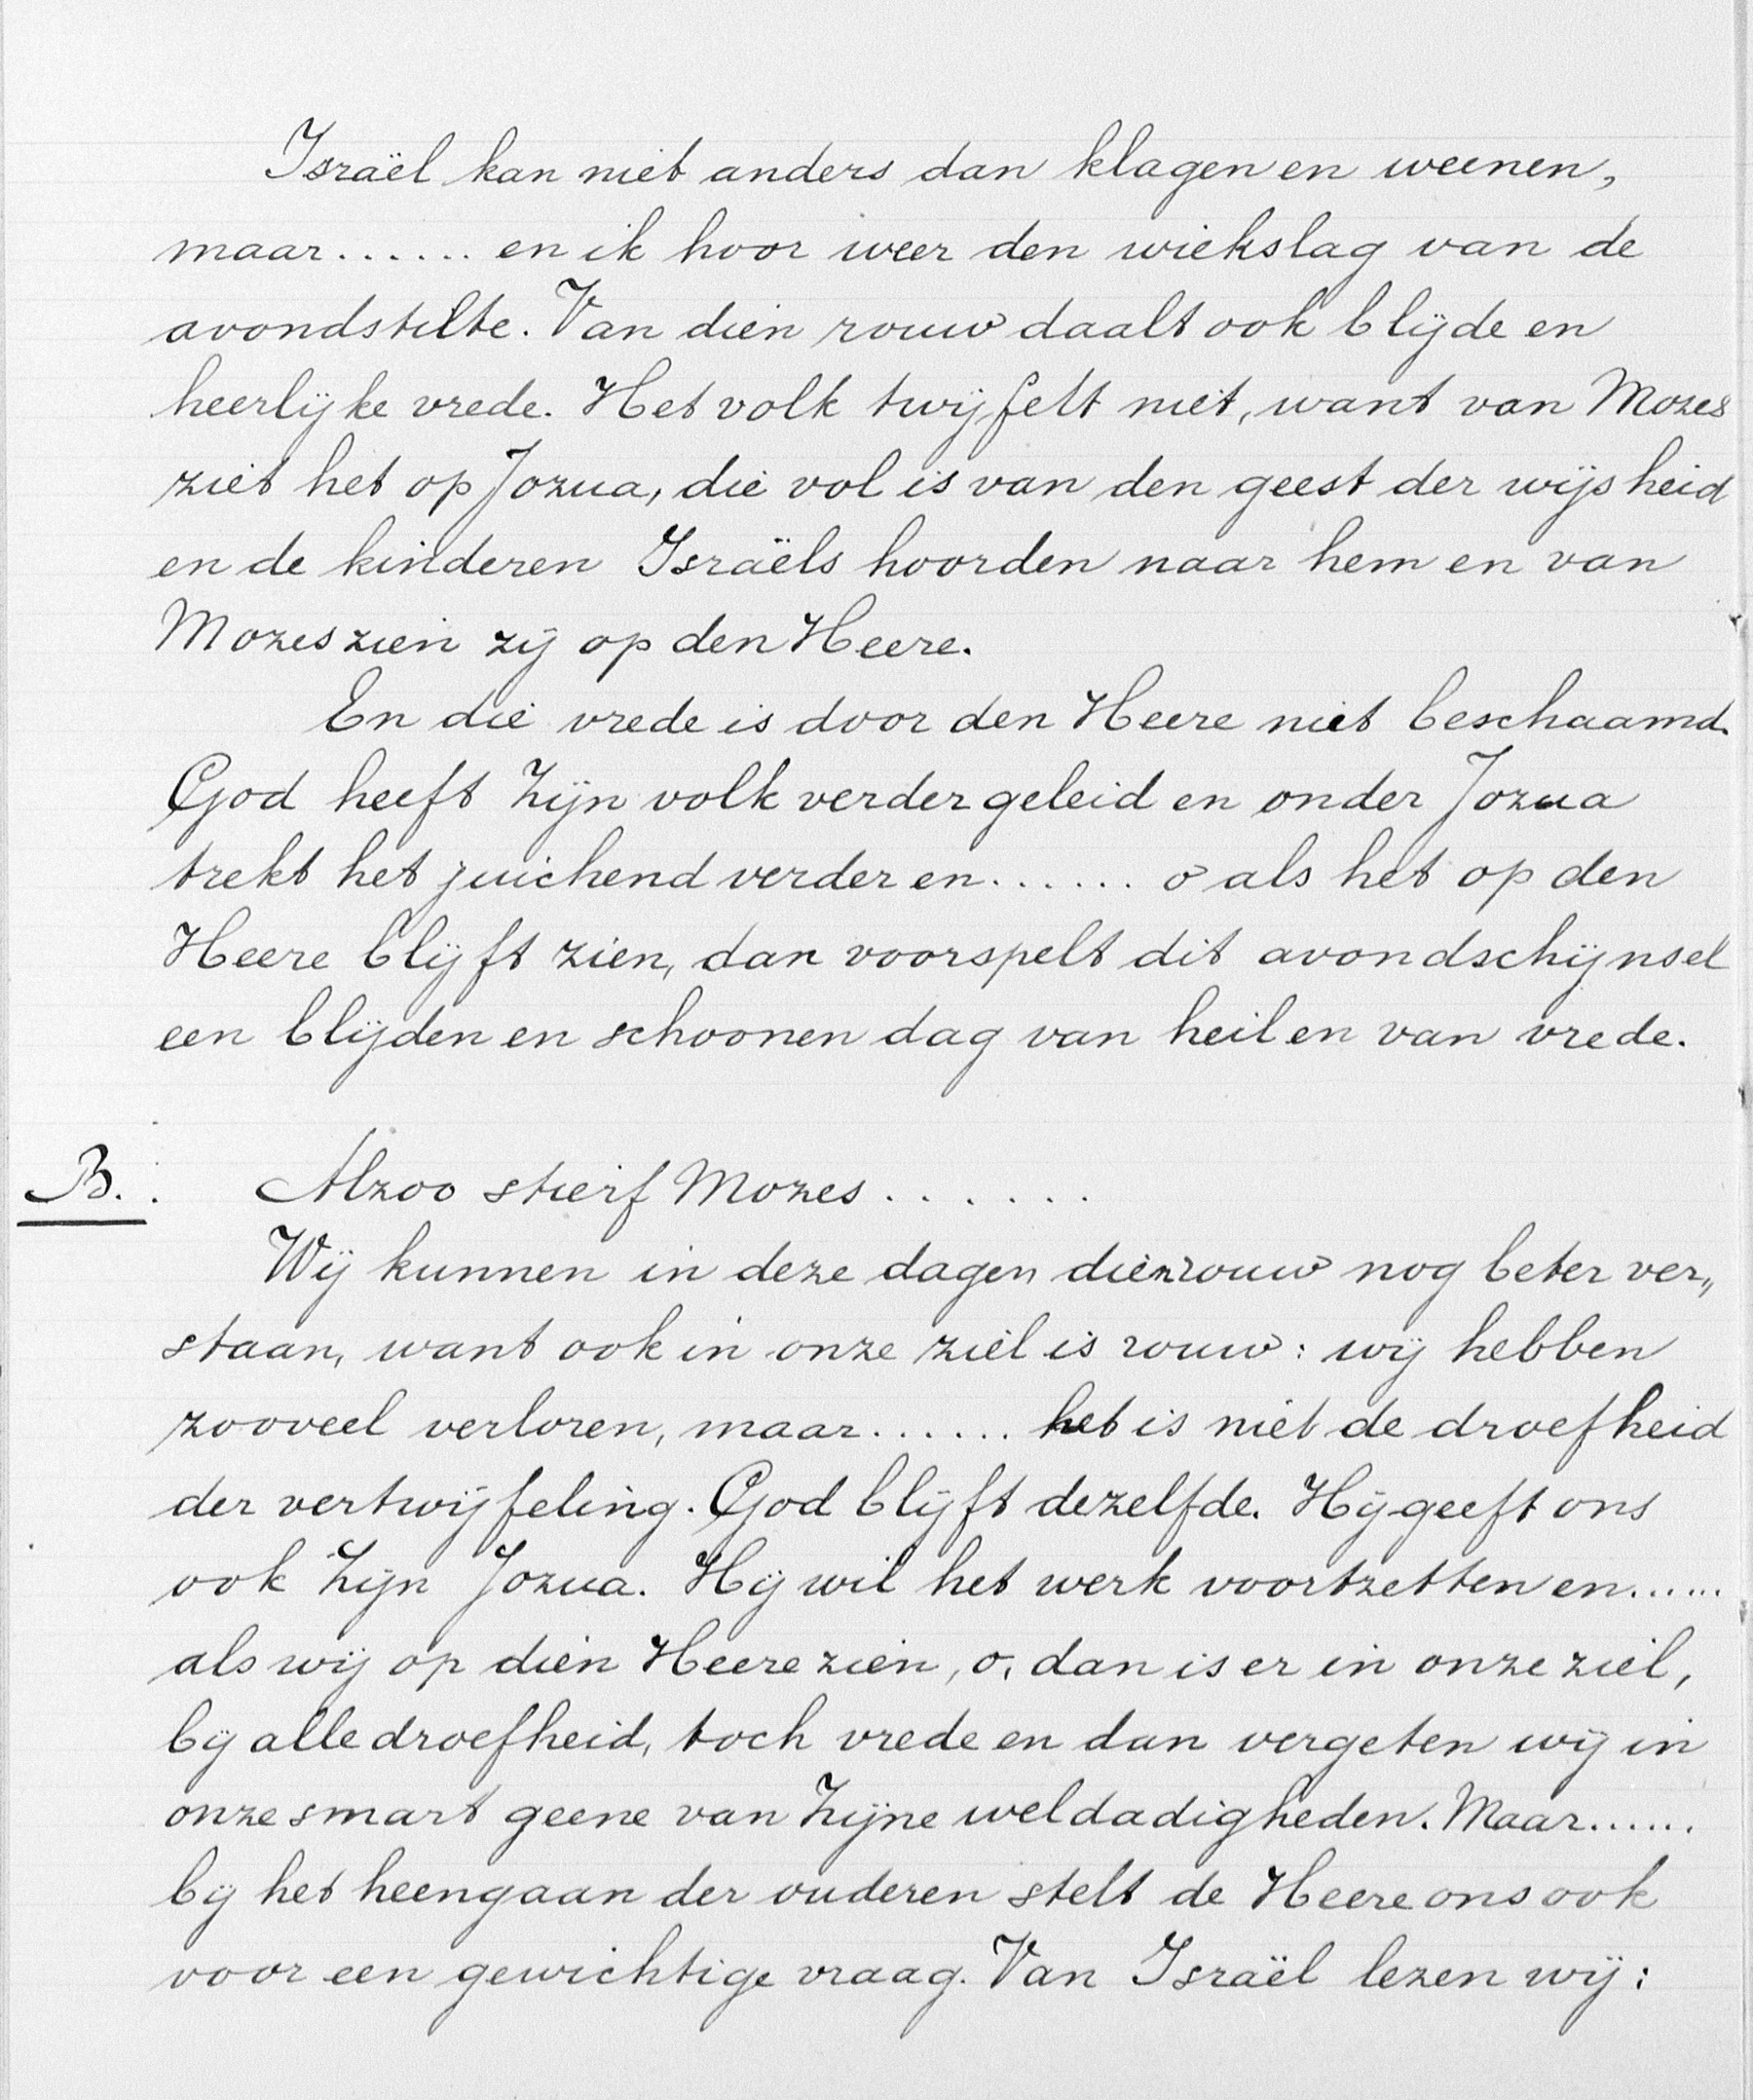 Israël kan niet anders dan klagen en weenen,
maar...... en ik hoor weer den wiekslag van de
avondstilte. Van dien rouw daalt ook blijde en
heerlijke vrede. Het volk twijfelt niet, want van Mozes
ziet het op Jozua, die vol is van den geest der wijsheid
en de kinderen Israëls hoorden naar hem en van
Mozes zien zij op den Heere.
En die vrede is door den Heere niet beschaamd.
God heeft Zijn volk verder geleid en onder Jozua
trekt het juichend verder en...... o als het op den
Heere blijft zien, dan voorspelt dit avondschijnsel
een blijden en schoonen dag van heil en van vrede.
B. Alzoo stierf Mozes.......
Wij kunnen in deze dagen dien rouw nog beter ver„
staan, want ook in onze ziel is rouw: wij hebben
zooveel verloren, maar...... het is niet de droefheid
der vertwijfeling. God blijft dezelfde. Hij geeft ons
ook Zijn Jozua. Hij wil het werk voortzetten en......
als wij op dien Heere zien, o, dan is er in onze ziel,
bij alle droefheid, toch vrede en dan vergeten wij in
onze smart geene van Zijne weldadigheden. Maar......
bij het heengaan der ouderen stelt de Heere ons ook
voor een gewichtige vraag. Van Israël lezen wij: